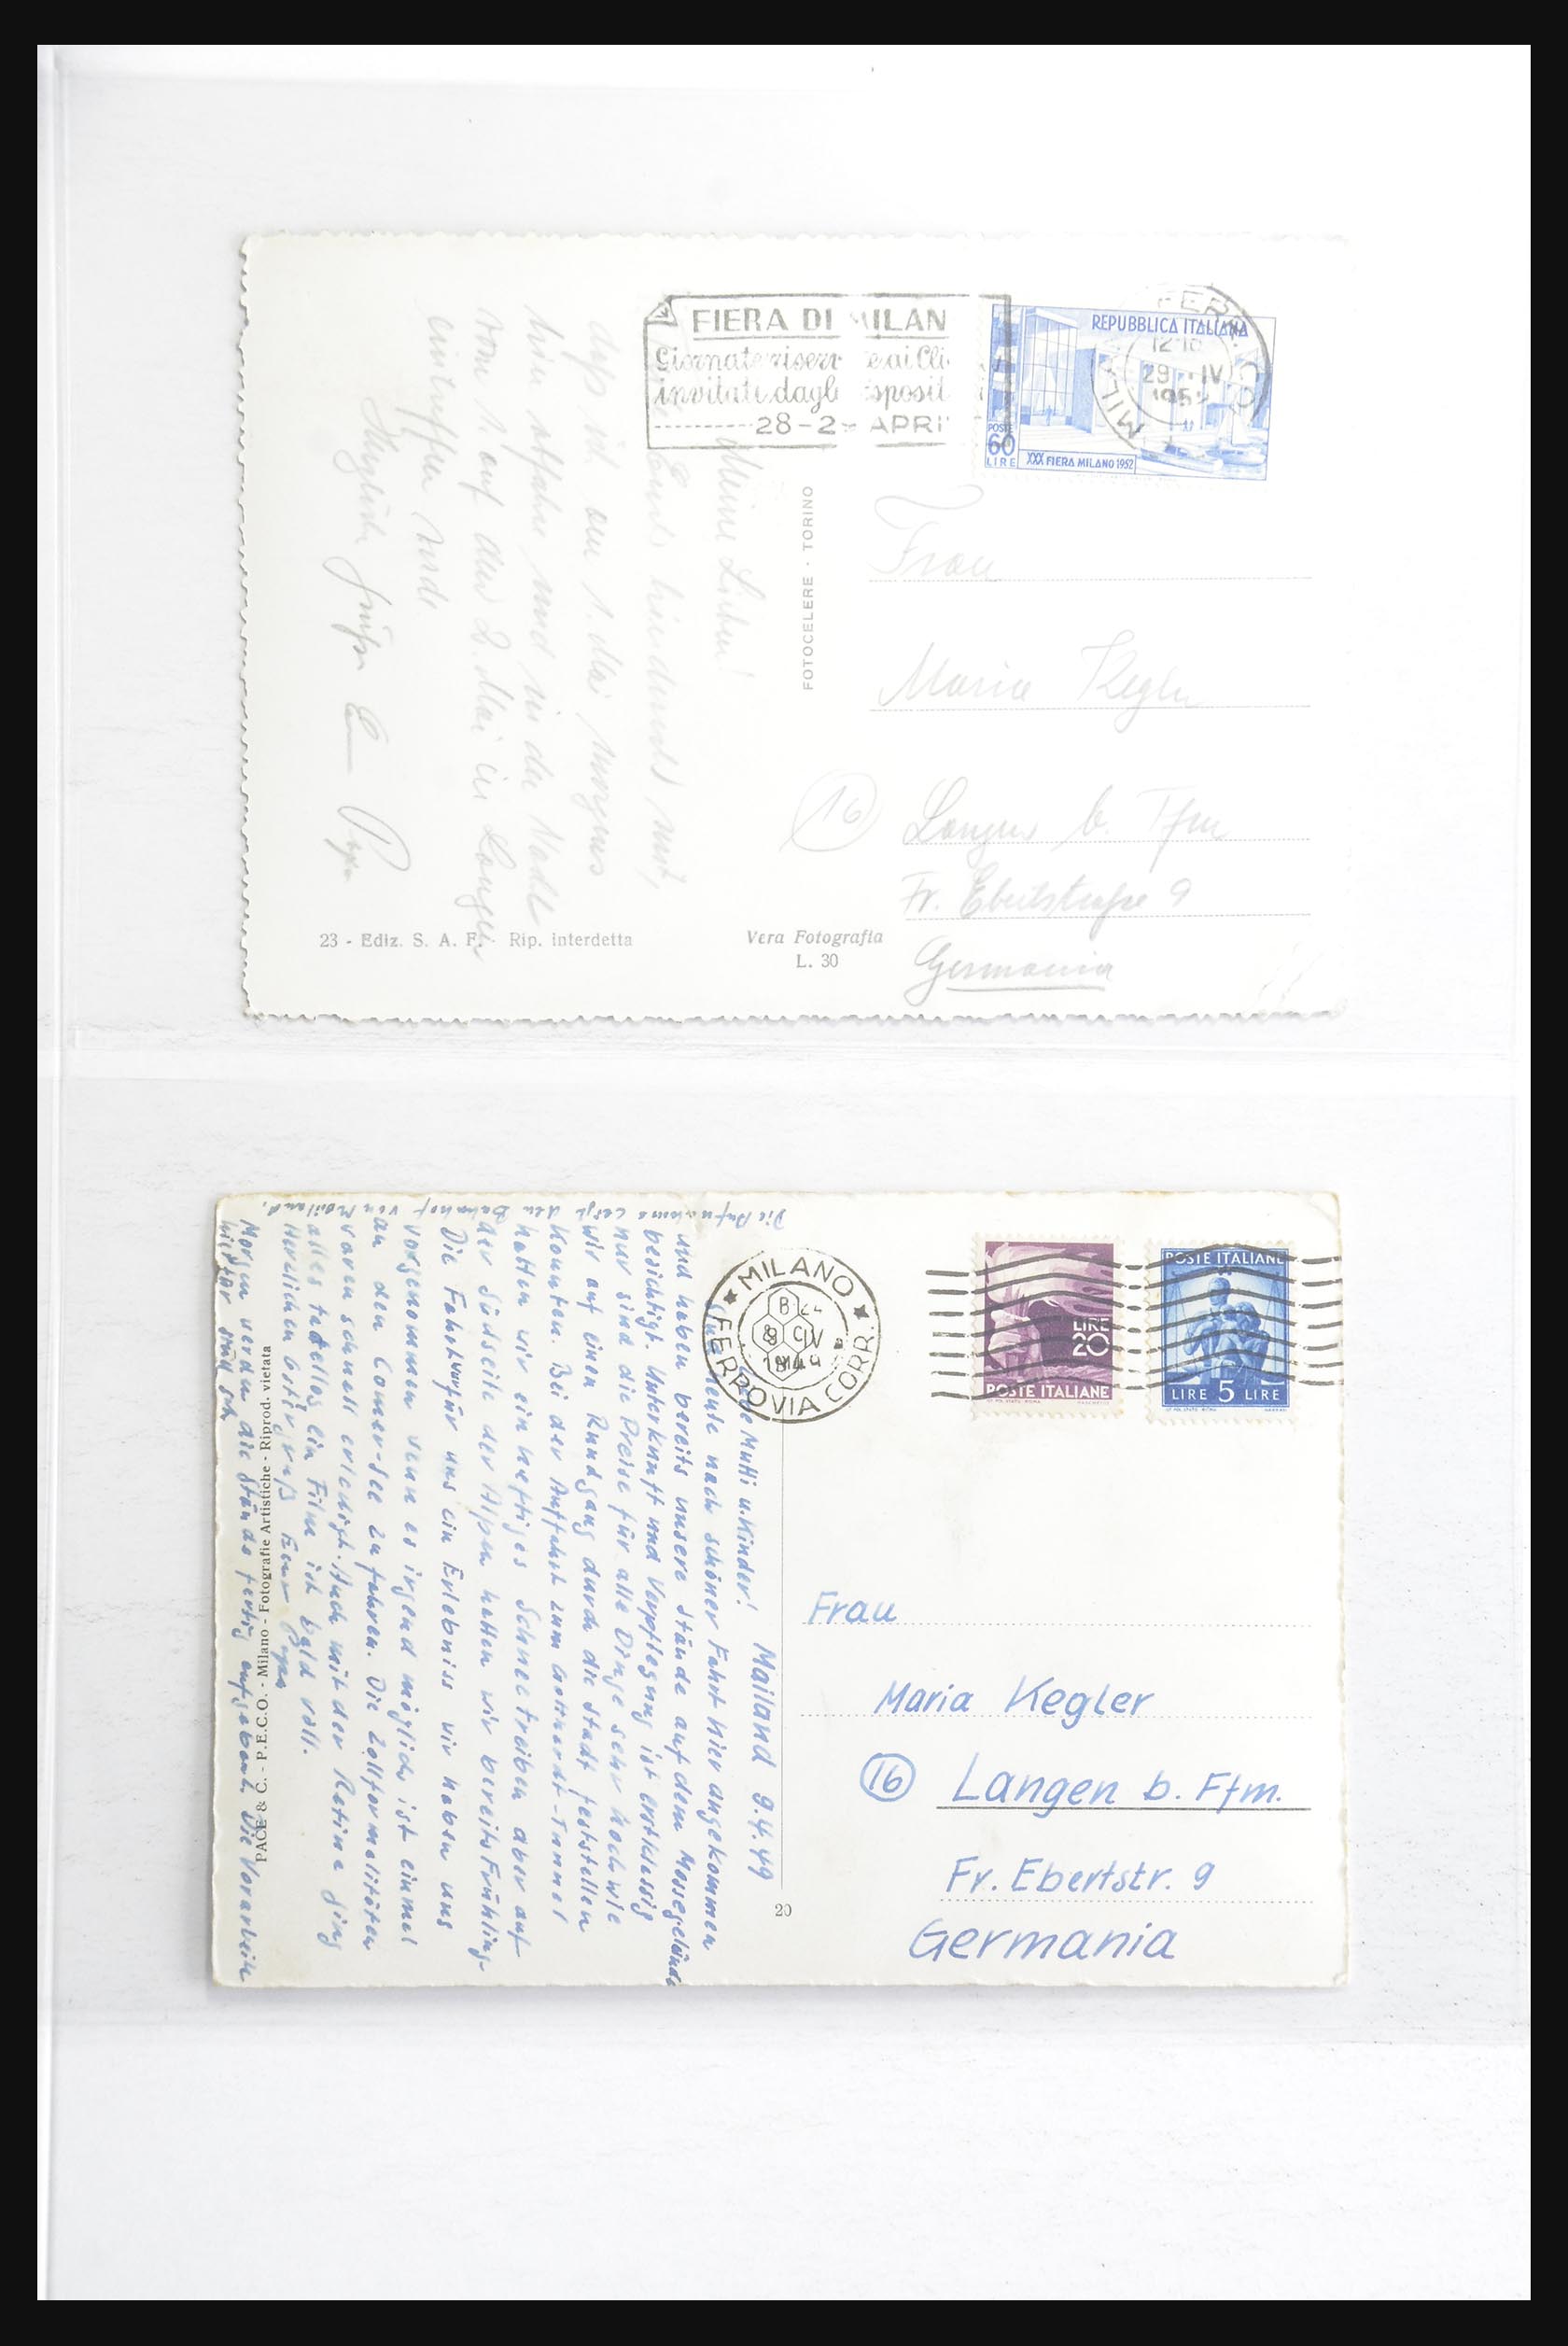 FIERA DI MILAN
Giornate riser e ai Cli
invitati dagli esposit
28-2 APRI
REPUBBLICA ITALIANA
POSTE
60
LIRE
XXX FIERA MILANO 1952
FERR. CO
MILA
12-13
29 IV
195
Meine Lieben!
Euch hierdurch mit,
daß ich am 1. Mai morgens
hier abfahre und in der Nacht
vom 1. auf den 2. Mai in Langen
eintreffen werde
Herzliche Grüße Euer Papa
FOTOCELERE · TORINO
Frau
Maria Kegler
16
Langen b. Ffm
Fr. Ebertstraße 9
Germania
23 - Ediz. S. A. F. - Rip. interdetta
Vera Fotografia
L. 30
MILANO
FERROVIA CORR.
B 24
8 IV
1949
LIRE
20
POSTE ITALIANE
POSTE ITALIANE
LIRE 5 LIRE
Mailand 9.4.49
Liebe Mutti u. Kinder!
Sind heute nach schöner Fahrt hier angekommen
und haben bereits unsere Stände auf dem Messegelände
besichtigt. Unterkunft und Verpflegung ist erstklassig
nur sind die Preise für alle Dinge sehr hoch wie
wir auf einen Rundgang durch die Stadt feststellen
konnten. Bei der Auffahrt zum Gotthardt-Tunnel
hatten wir ein heftiges Schneetreiben aber auf
der Südseite der Alpen hatten wir bereits Frühling.
Die Fahrt war für uns ein Erlebniss wir haben uns
vorgenommen wenn es irgend möglich ist einmal
an den Comer-See zu fahren. Die Zollformalitäten
waren schnell erledigt. Auch mit der Retina ging
alles tadellos ein Film ist bald voll.
Herzlichen Ostergruß Euer Papa
Morgen wenn die Stände fertig aufgebaut. Die Vorarbeiten
hierfür sind sehr
Die Aufnahme zeigt den Bahnhof von Mailand.
PACE & C. - P.E.C.O. - Milano - Fotografie Artistiche - Riprod. vietata
20
Frau
Maria Kegler
16 Langen b. Ffm.
Fr. Ebertstr. 9
Germania